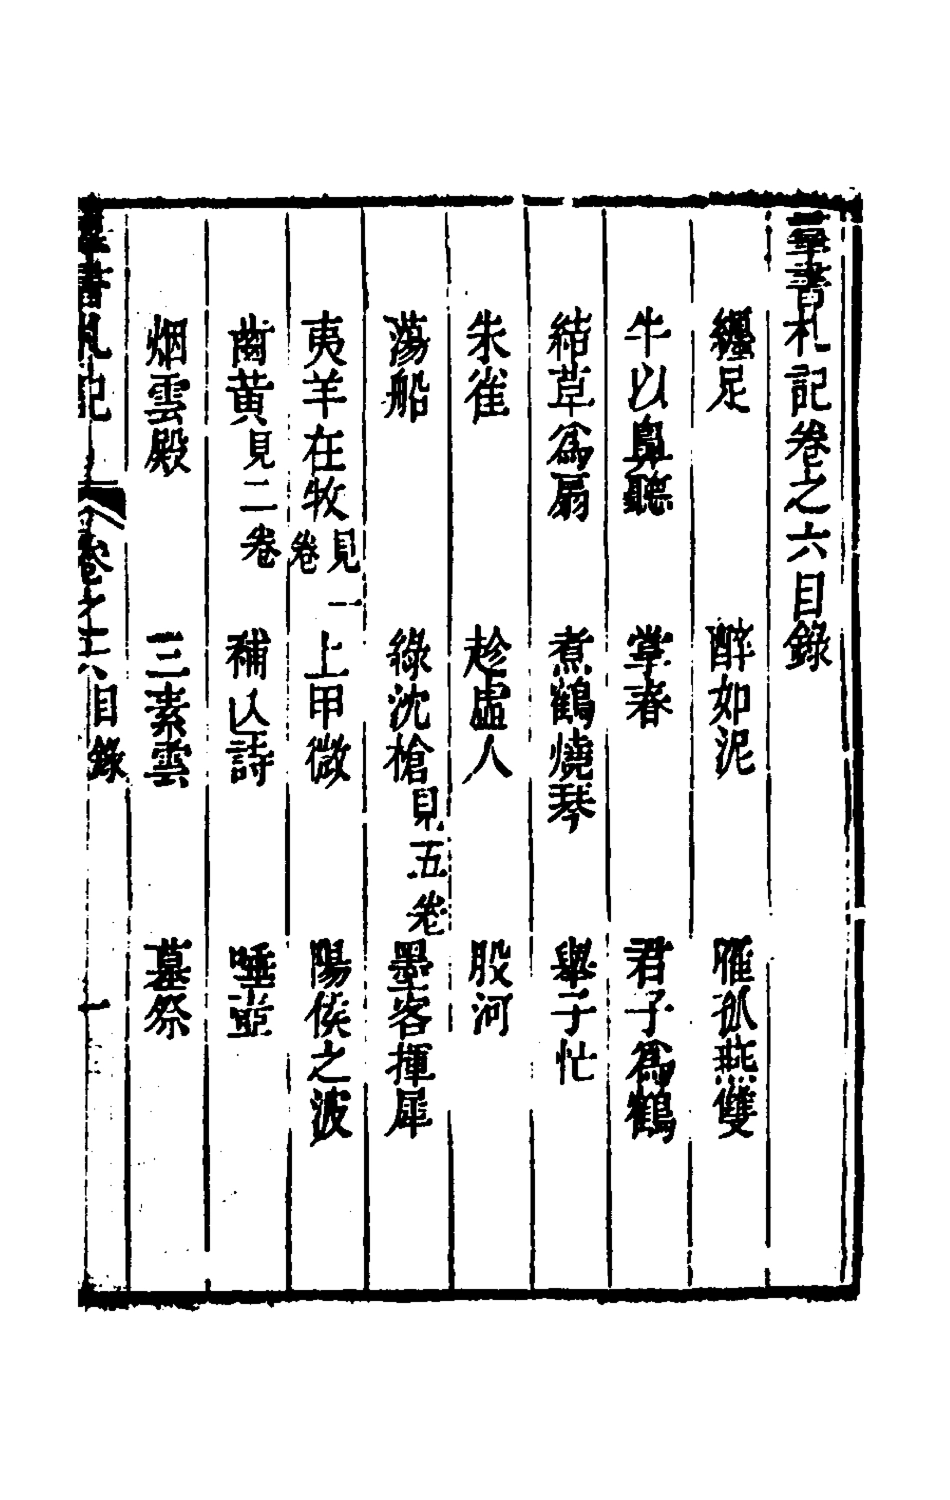 羣書札記卷之六目錄
纏足　醉如泥　雁孤燕雙
牛以鼻聽　掌春　君子爲鶴
結草爲扇　煮鶴燒琴　舉子忙
朱雀　趁虛人　股河
蕩船　綠沈槍見五卷　墨客揮犀
夷羊在牧見一卷　上甲微　陽侯之波
齒黃見二卷　補亾詩　唾壺
烟雲殿　三素雲　墓祭
羣書札記　卷之六目錄　一